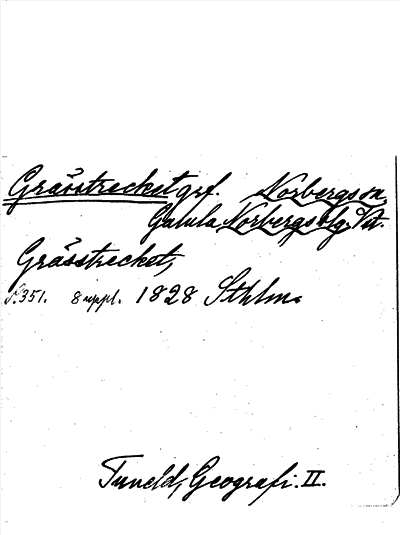 Grässtrecket grf. Norbergs sn,
Gamla Norbergs blg. Vst.
Grässtrecket,
S. 351. 8 uppl. 1828 Sthlm.
Tuneld, Geografi. II.